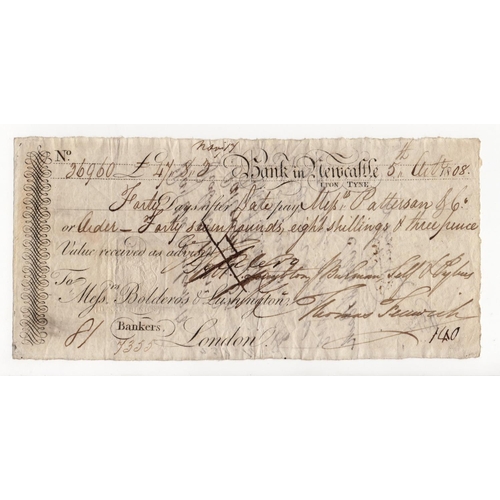 No. 36960 £ 47,,8,,3 Bank in Newcastle 5th Octr. 1808.
UPON TYNE
Forty Days after Date pay Messrs. Patterson & Co.
or order – Forty seven pounds, eight shillings & three pence
Value received as advised
To
Messrs. Bolderos & Lushington
Thomas Fenwick
Bankers,
81
7355
London
140